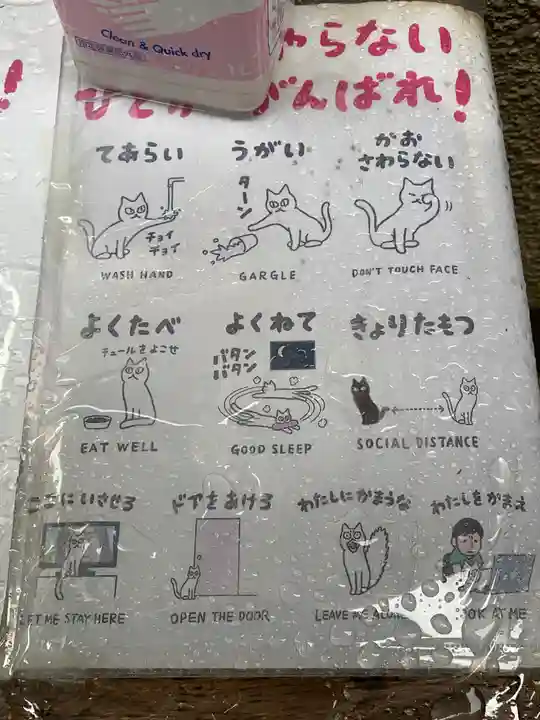 Clean & Quick dry
1L
わらない
がんばれ!
てあらい
うがい
かお
さわらない
チョイ
チョイ
ターン
WASH HAND
GARGLE
DON'T TOUCH FACE
よくたべ
よくねて
きょりたもつ
チュールをよこせ
バタン
バタン
EAT WELL
GOOD SLEEP
SOCIAL DISTANCE
ここにいさせろ
ドアをあけろ
わたしにかまうな
わたしをかまえ
LET ME STAY HERE
OPEN THE DOOR
LEAVE ME ALONE
LOOK AT ME